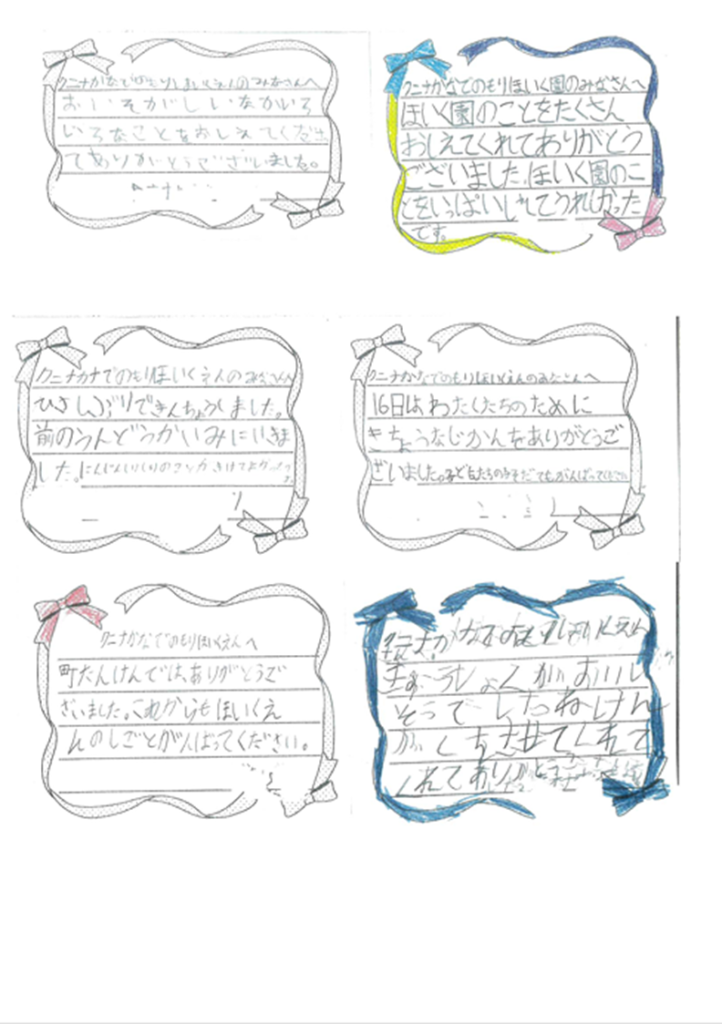 クニナかなでのもりほいくえんのみなさんへ
おいそがしいなかいろ
いろなことをおしえてくださっ
てありがとうございました。
クニナかなでのもりほいく園のみなさんへ
ほいく園のことをたくさん
おしえてくれてありがとう
ございました。ほいく園のこ
とをいっぱいしれてうれしかった
です。
クニナカナでのもりほいくえんのみなさんへ
ひさしぶりできんちょうしました。
前のうんどうかいみにいきま
した。
クニナかなでのもりほいくえんのみなさんへ
16日はわたくたちのために
きちょうなじかんをありがとうご
ざいました。子ども
クニナかなでのもりほいくえんへ
町たんけんでは、ありがとうご
ざいました。これからもほいくえ
んのしごとがんばってください。
きゅうしょくがおいし
そうでしたねけん
がくもさせてくれて
くれてあり